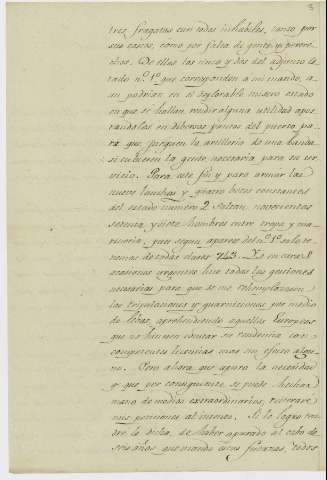 3
tres fragatas son todas inutiles, tanto por
sus cascos, como por falta de gente y pertre-
chos. De ellas las cinco y dos del adjunto es-
tado nº 1º que corresponden a mi mando, a-
un podrian en el deplorable misero estado
en que se hallan, rendir alguna utilidad apos-
tandolas en diversos puntos del puerto pa-
ra que jueguen la artilleria de una banda
si tubieren la gente necesaria para su ser-
vicio. Para este fin y para armar las
nueve lanchas y quatro botes constantes
del estado numero 2 faltan, novecientos
setenta y siete hombres entre tropa y ma-
rineria, pues segun aparece del nº 1º solo te-
nemos de todas clases 743. Ya en otras
ocasiones urgentes hice todas las gestiones
necesarias para que se me reemplazasen
las tripulaciones y guarniciones por medio
de lebas, aprehendiendo aquellos Europeos
que no hiciesen constar su residencia con
competentes licencias mas sin efecto algu-
no. Pero ahora que apura la necesidad
y que por consiguiente, se puede hechar
mano de medios extraordinarios, reiterare
mis peticiones al menos. Si lo logro ten-
dre la dicha, de haber apurado al cabo de
seis años, que mando estas fuerzas, todos